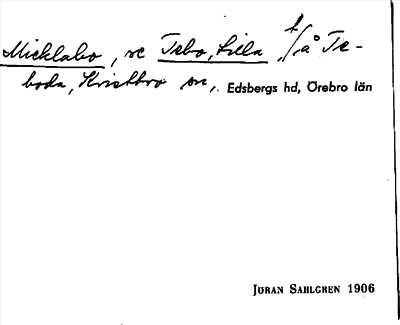 Micklabo, se Tebo, Lilla f/å Te-
boda, Kvistbro sn, Edsbergs hd, Örebro län
JÖRAN SAHLGREN 1906